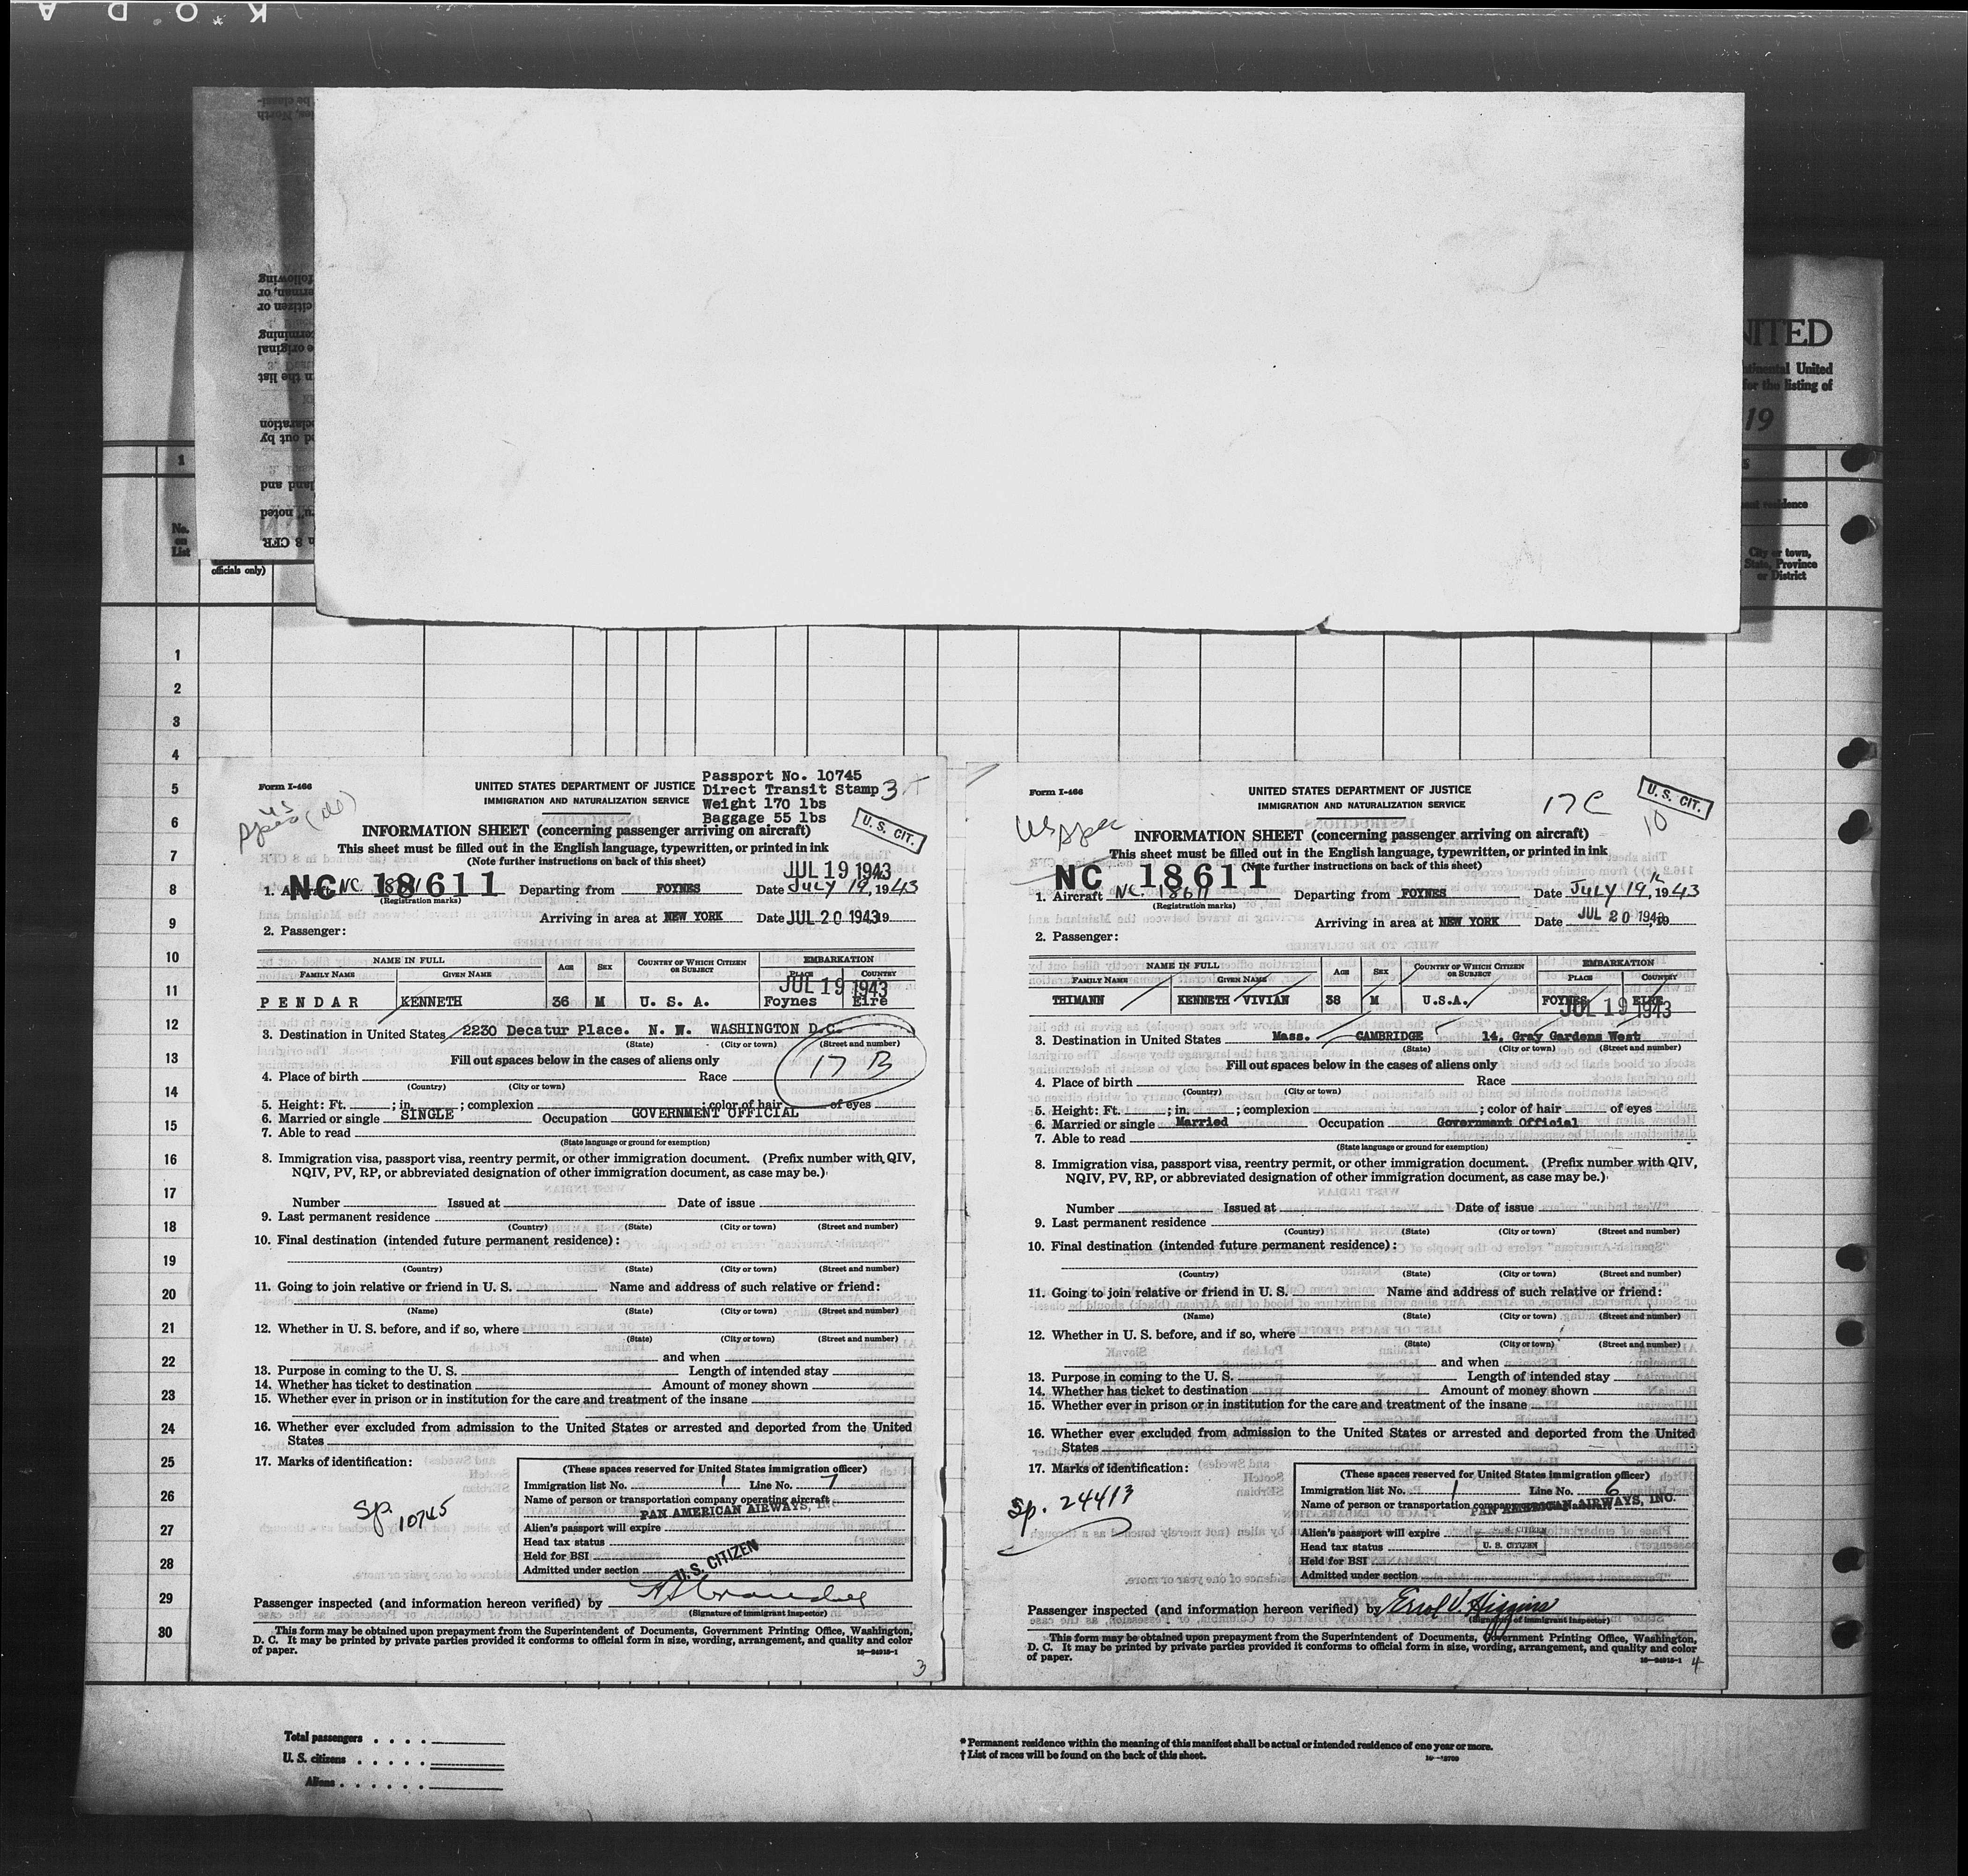 K * O D A
NITED
ntinental United
for the listing of
19
1
No.
on
List
officials only)
ent residence
City or town,
State, Province
or District
1
2
3
4
5
6
7
8
9
10
11
12
13
14
15
16
17
18
19
20
21
22
23
24
25
26
27
28
29
30
Form I-466
UNITED STATES DEPARTMENT OF JUSTICE
IMMIGRATION AND NATURALIZATION SERVICE
Passport No. 10745
Direct Transit Stamp 3
Weight 170 lbs
Baggage 55 lbs
U. S. CIT.
INFORMATION SHEET (concerning passenger arriving on aircraft)
This sheet must be filled out in the English language, typewritten, or printed in ink
(Note further instructions on back of this sheet)
JUL 19 1943
NC 18611
1. Aircraft NC 18611 Departing from FOYNES Date July 19, 1943
(Registration marks)
Arriving in area at NEW YORK Date JUL 20 1943 19
2. Passenger:
NAME IN FULL AGE SEX COUNTRY OF WHICH CITIZEN OR SUBJECT EMBARKATION
FAMILY NAME GIVEN NAME PLACE COUNTRY
JUL 19 1943
PENDAR KENNETH 36 M U. S. A. Foynes Eire
3. Destination in United States 2230 Decatur Place. N. W. WASHINGTON D.C.
(State) (City or town) (Street and number)
17 B
Fill out spaces below in the cases of aliens only
4. Place of birth Race
(Country) (City or town)
5. Height: Ft. ; in. ; complexion ; color of hair of eyes
6. Married or single SINGLE Occupation GOVERNMENT OFFICIAL
7. Able to read
(State language or ground for exemption)
8. Immigration visa, passport visa, reentry permit, or other immigration document. (Prefix number with QIV,
NQIV, PV, RP, or abbreviated designation of other immigration document, as case may be.)
Number Issued at Date of issue
9. Last permanent residence
(Country) (State) (City or town) (Street and number)
10. Final destination (intended future permanent residence):
(Country) (State) (City or town) (Street and number)
11. Going to join relative or friend in U. S. Name and address of such relative or friend:
(Name) (State) (City or town) (Street and number)
12. Whether in U. S. before, and if so, where
(State) (City or town) (Street and number)
and when
13. Purpose in coming to the U. S. Length of intended stay
14. Whether has ticket to destination Amount of money shown
15. Whether ever in prison or in institution for the care and treatment of the insane
16. Whether ever excluded from admission to the United States or arrested and deported from the United
States
17. Marks of identification:
Sp. 10745
(These spaces reserved for United States immigration officer)
Immigration list No. 1 Line No. 7
Name of person or transportation company operating aircraft
PAN AMERICAN AIRWAYS, INC.
Alien's passport will expire
Head tax status
Held for BSI
Admitted under section U. S. CITIZEN
Passenger inspected (and information hereon verified) by
(Signature of immigrant inspector)
This form may be obtained upon prepayment from the Superintendent of Documents, Government Printing Office, Washington,
D. C. It may be printed by private parties provided it conforms to official form in size, wording, arrangement, and quality and color
of paper.
16—24915-1
3
Form I-466
UNITED STATES DEPARTMENT OF JUSTICE
IMMIGRATION AND NATURALIZATION SERVICE
17C
U. S. CIT.
10
INFORMATION SHEET (concerning passenger arriving on aircraft)
This sheet must be filled out in the English language, typewritten, or printed in ink
(Note further instructions on back of this sheet)
NC 18611
1. Aircraft NC. 18611 Departing from FOYNES Date July 19th, 1943
(Registration marks)
Arriving in area at NEW YORK Date JUL 20 1943, 19
2. Passenger:
NAME IN FULL AGE SEX COUNTRY OF WHICH CITIZEN OR SUBJECT EMBARKATION
FAMILY NAME GIVEN NAME PLACE COUNTRY
THIMANN KENNETH VIVIAN 38 M U.S.A. FOYNES EIRE
JUL 19 1943
3. Destination in United States Mass. CAMBRIDGE 14, Gray Gardens West
(State) (City or town) (Street and number)
Fill out spaces below in the cases of aliens only
4. Place of birth Race
(Country) (City or town)
5. Height: Ft. ; in. ; complexion ; color of hair of eyes
6. Married or single Married Occupation Government Official
7. Able to read
(State language or ground for exemption)
8. Immigration visa, passport visa, reentry permit, or other immigration document. (Prefix number with QIV,
NQIV, PV, RP, or abbreviated designation of other immigration document, as case may be.)
Number Issued at Date of issue
9. Last permanent residence
(Country) (State) (City or town) (Street and number)
10. Final destination (intended future permanent residence):
(Country) (State) (City or town) (Street and number)
11. Going to join relative or friend in U. S. Name and address of such relative or friend:
(Name) (State) (City or town) (Street and number)
12. Whether in U. S. before, and if so, where
(State) (City or town) (Street and number)
and when
13. Purpose in coming to the U. S. Length of intended stay
14. Whether has ticket to destination Amount of money shown
15. Whether ever in prison or in institution for the care and treatment of the insane
16. Whether ever excluded from admission to the United States or arrested and deported from the United
States
17. Marks of identification:
Sp. 24413
(These spaces reserved for United States immigration officer)
Immigration list No. 1 Line No. 6
Name of person or transportation company operating aircraft
PAN AMERICAN AIRWAYS, INC.
Alien's passport will expire
Head tax status U. S. CITIZEN
Held for BSI
Admitted under section
Passenger inspected (and information hereon verified) by Errol V. Higgins
(Signature of immigrant inspector)
This form may be obtained upon prepayment from the Superintendent of Documents, Government Printing Office, Washington,
D. C. It may be printed by private parties provided it conforms to official form in size, wording, arrangement, and quality and color
of paper.
16—24915-1
4
Total passengers . . . .
U. S. citizens . . . . .
Aliens . . . . . .
* Permanent residence within the meaning of this manifest shall be actual or intended residence of one year or more.
† List of races will be found on the back of this sheet.